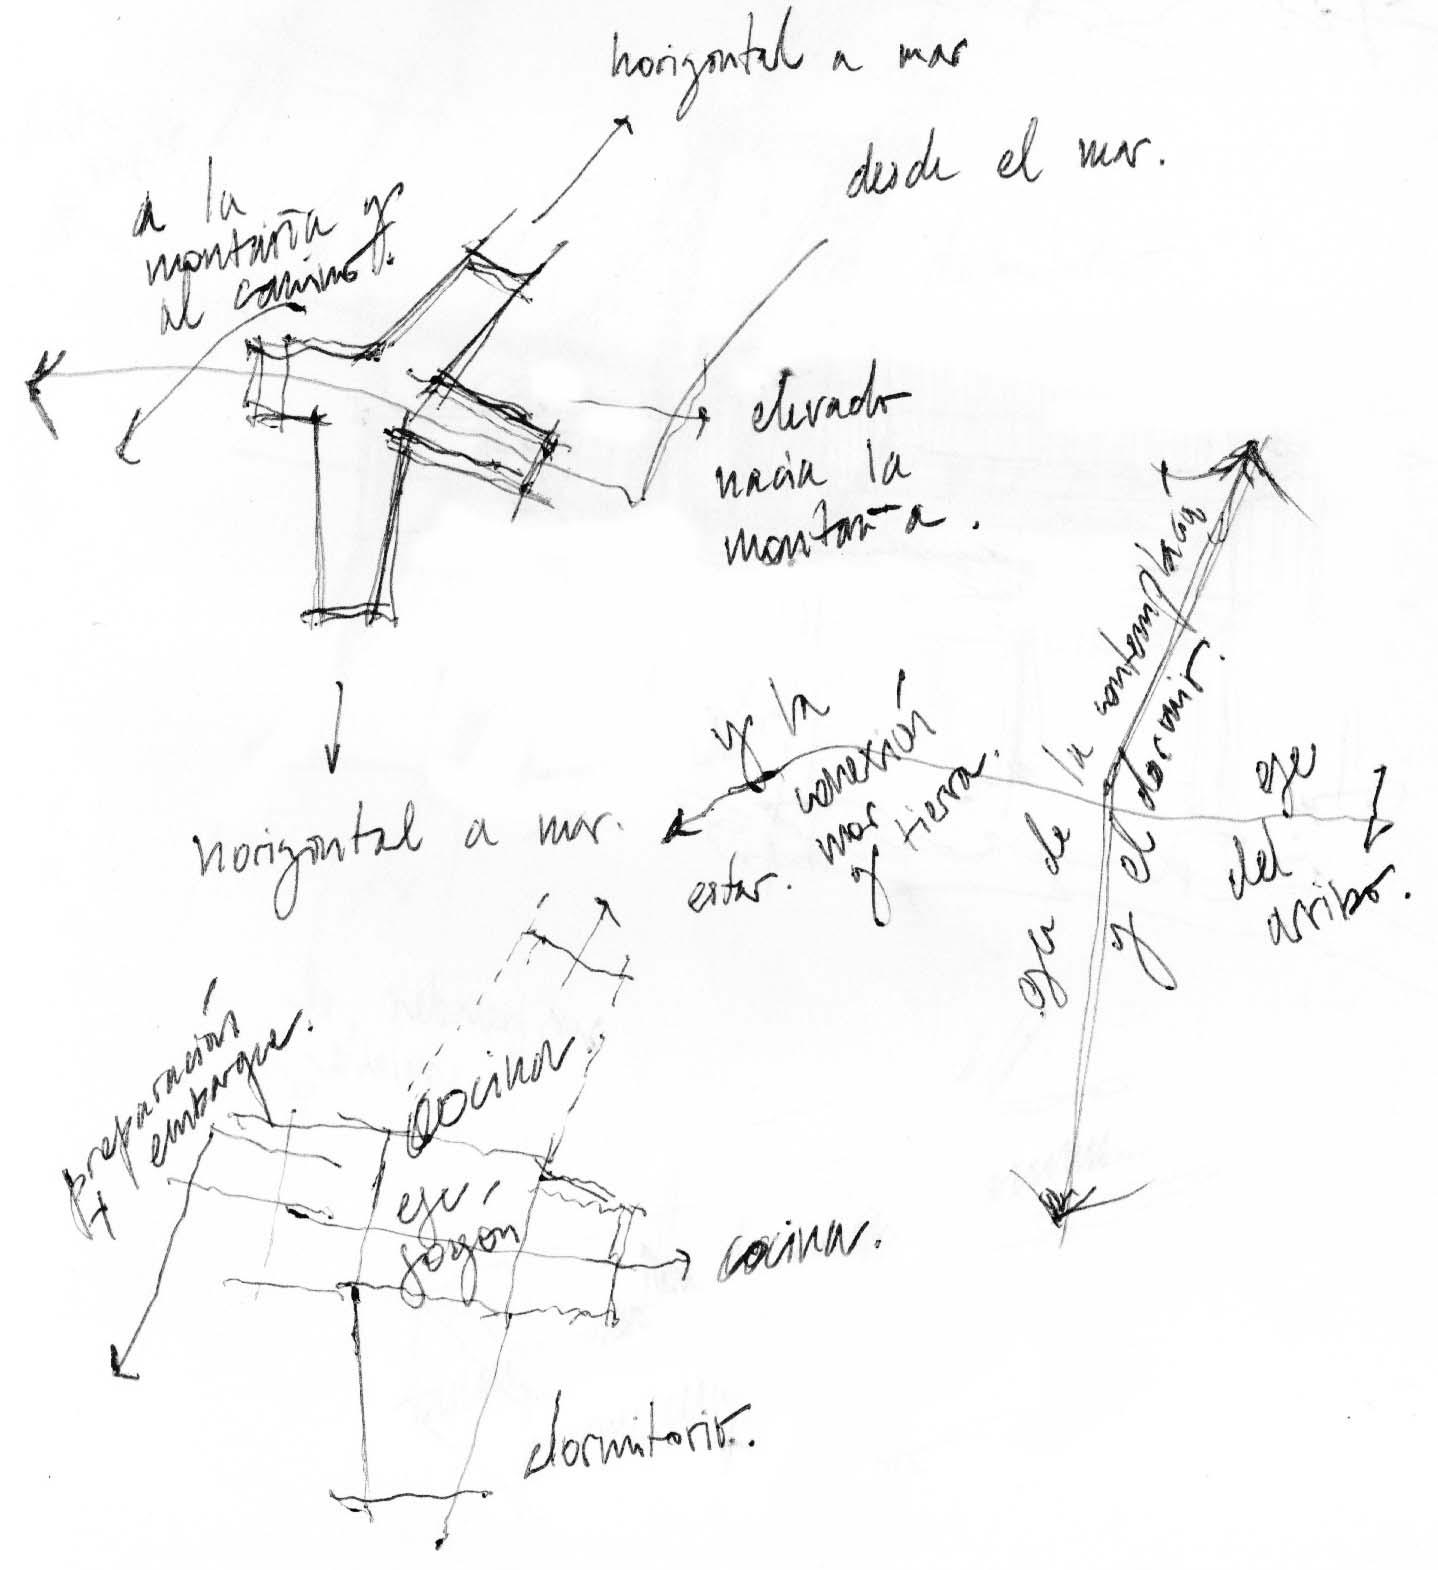 horizontal a mar
desde el mar.
a la
montaña y
al camino.
elevado
hacia la
montaña.
horizontal a mar.
eje de la contemplación
y el dormir.
eje
del
arribo.
y la
conexión
mar
y tierra.
estar.
preparación
embarque.
cocina.
eje,
fogón
cocina.
dormitorio.